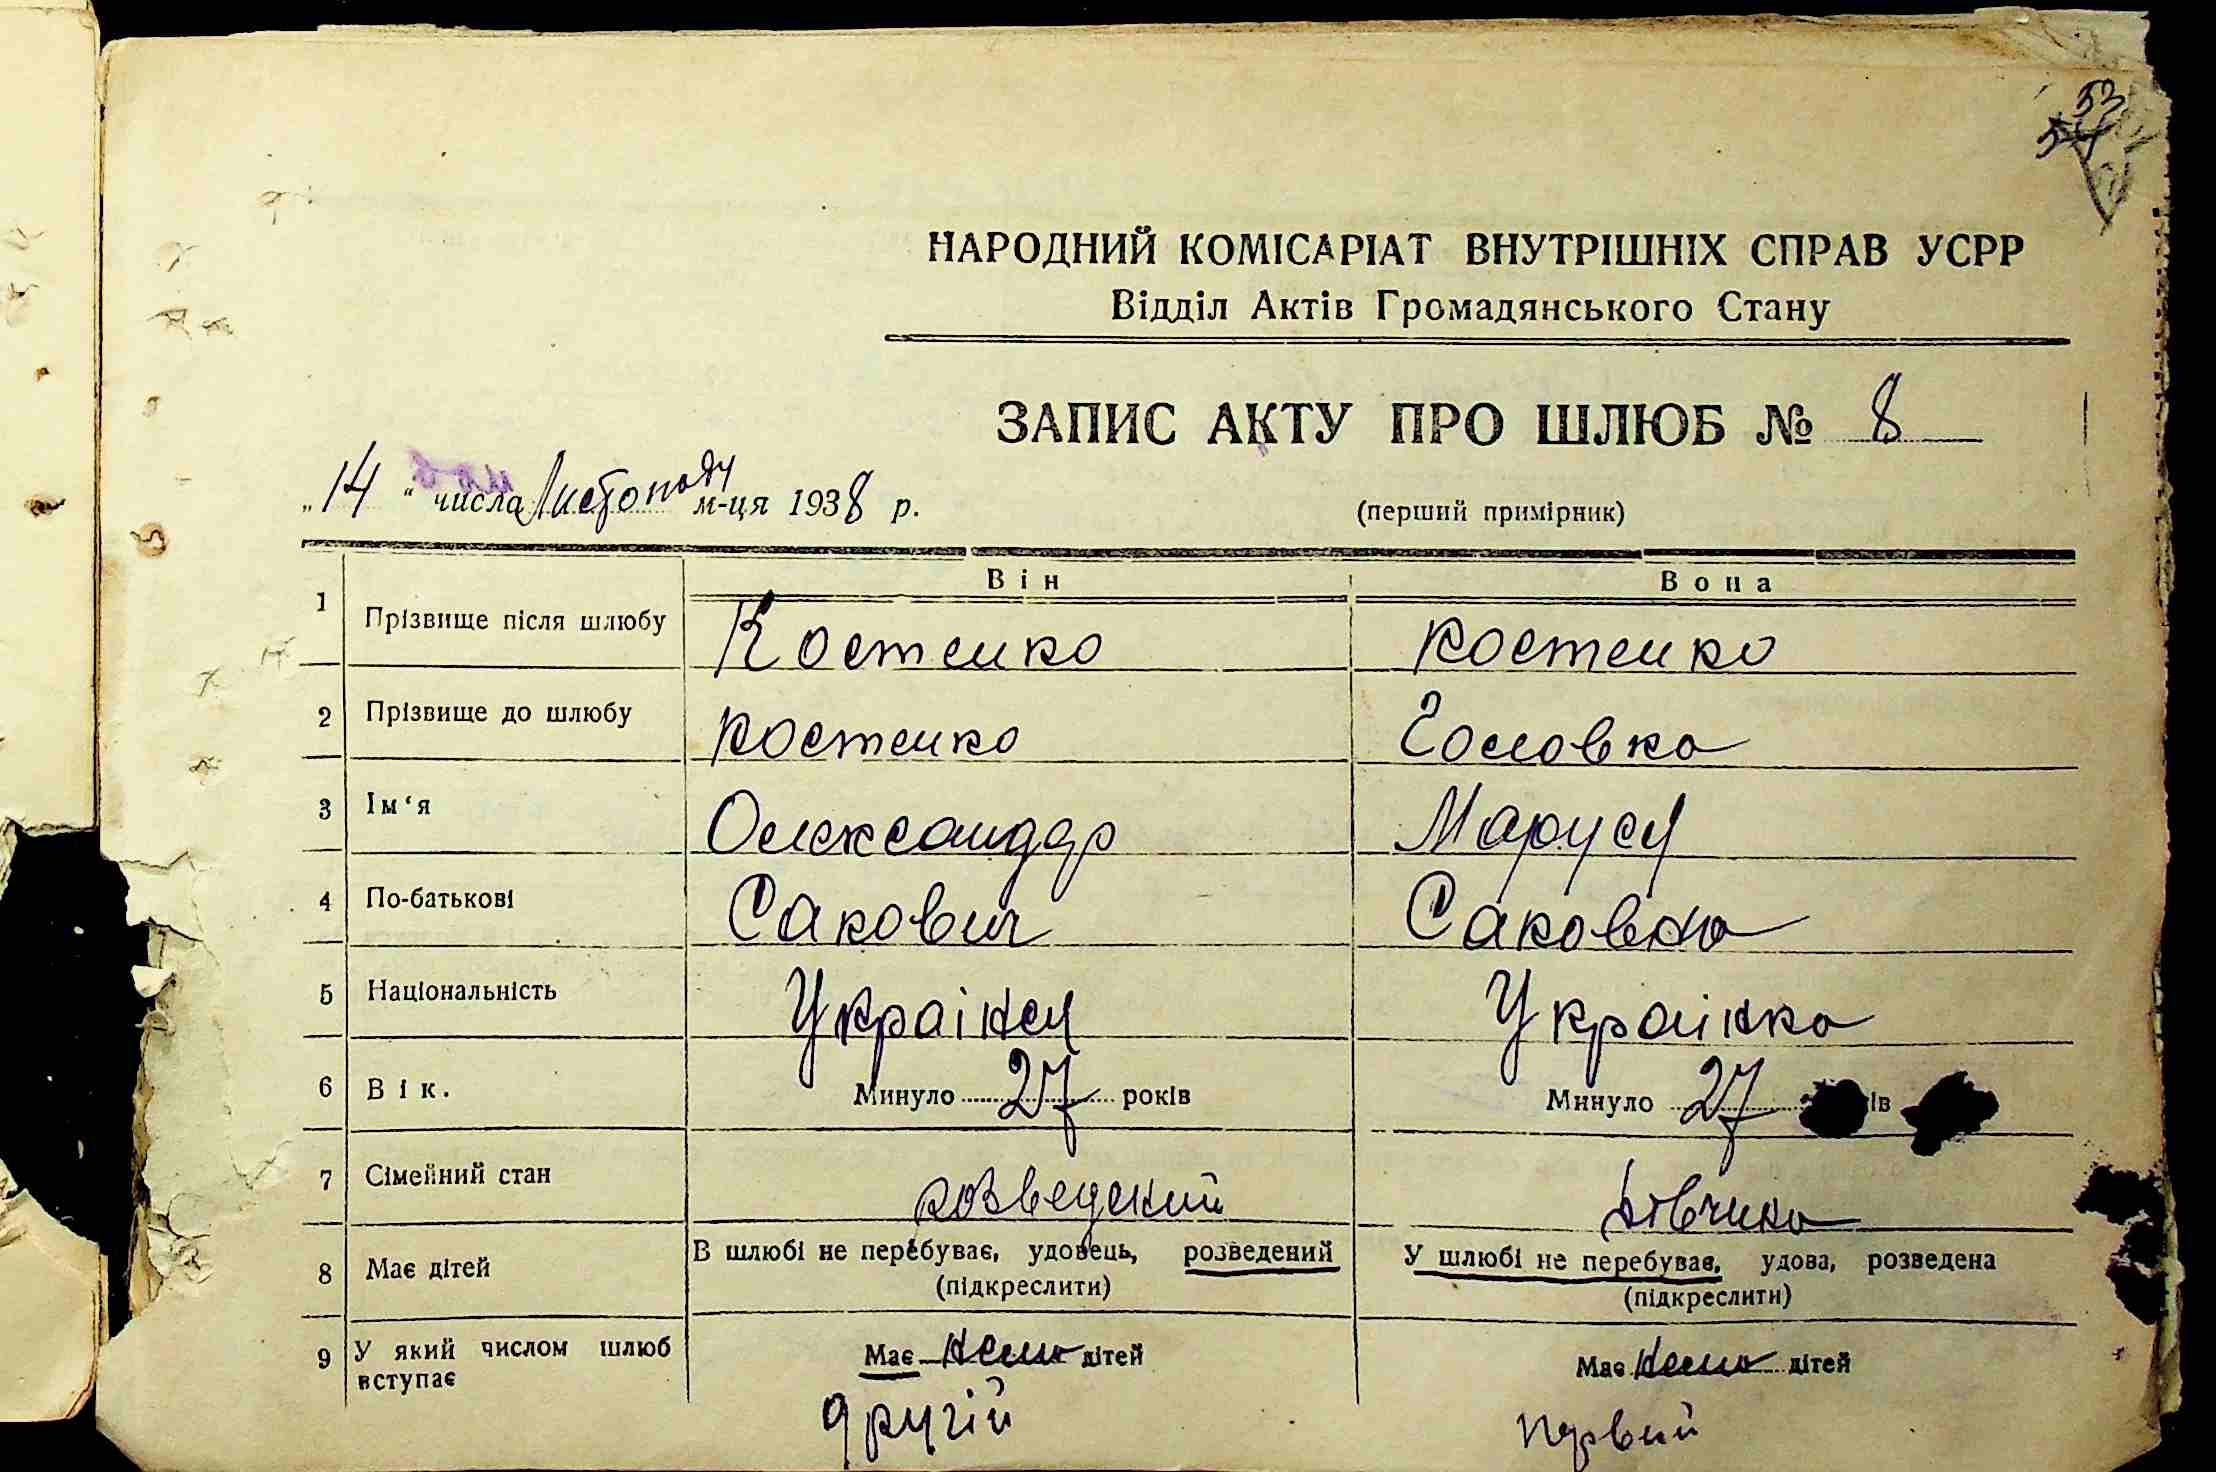 53
54
НАРОДНИЙ КОМІСАРІАТ ВНУТРІШНІХ СПРАВ УСРР
Відділ Актів Громадянського Стану
ЗАПИС АКТУ ПРО ШЛЮБ № 8
„14“ числа Листопаду м-ця 1938 р.
(перший примірник)
Він Вона
1 Прізвище після шлюбу Костенко Костенко
2 Прізвище до шлюбу Костенко Головко
3 Ім‘я Олександр Маруся
4 По-батькові Сакович Саковна
5 Національність Українец Украинка
6 Вік. Минуло 27 років Минуло 27 ів
7 Сімейний стан розведений дівчина
8 Має дітей В шлюбі не перебуває, удовець, розведений У шлюбі не перебуває, удова, розведена
(підкреслити) (підкреслити)
9 У який числом шлюб вступає Має нема дітей Має нема дітей
другій первий